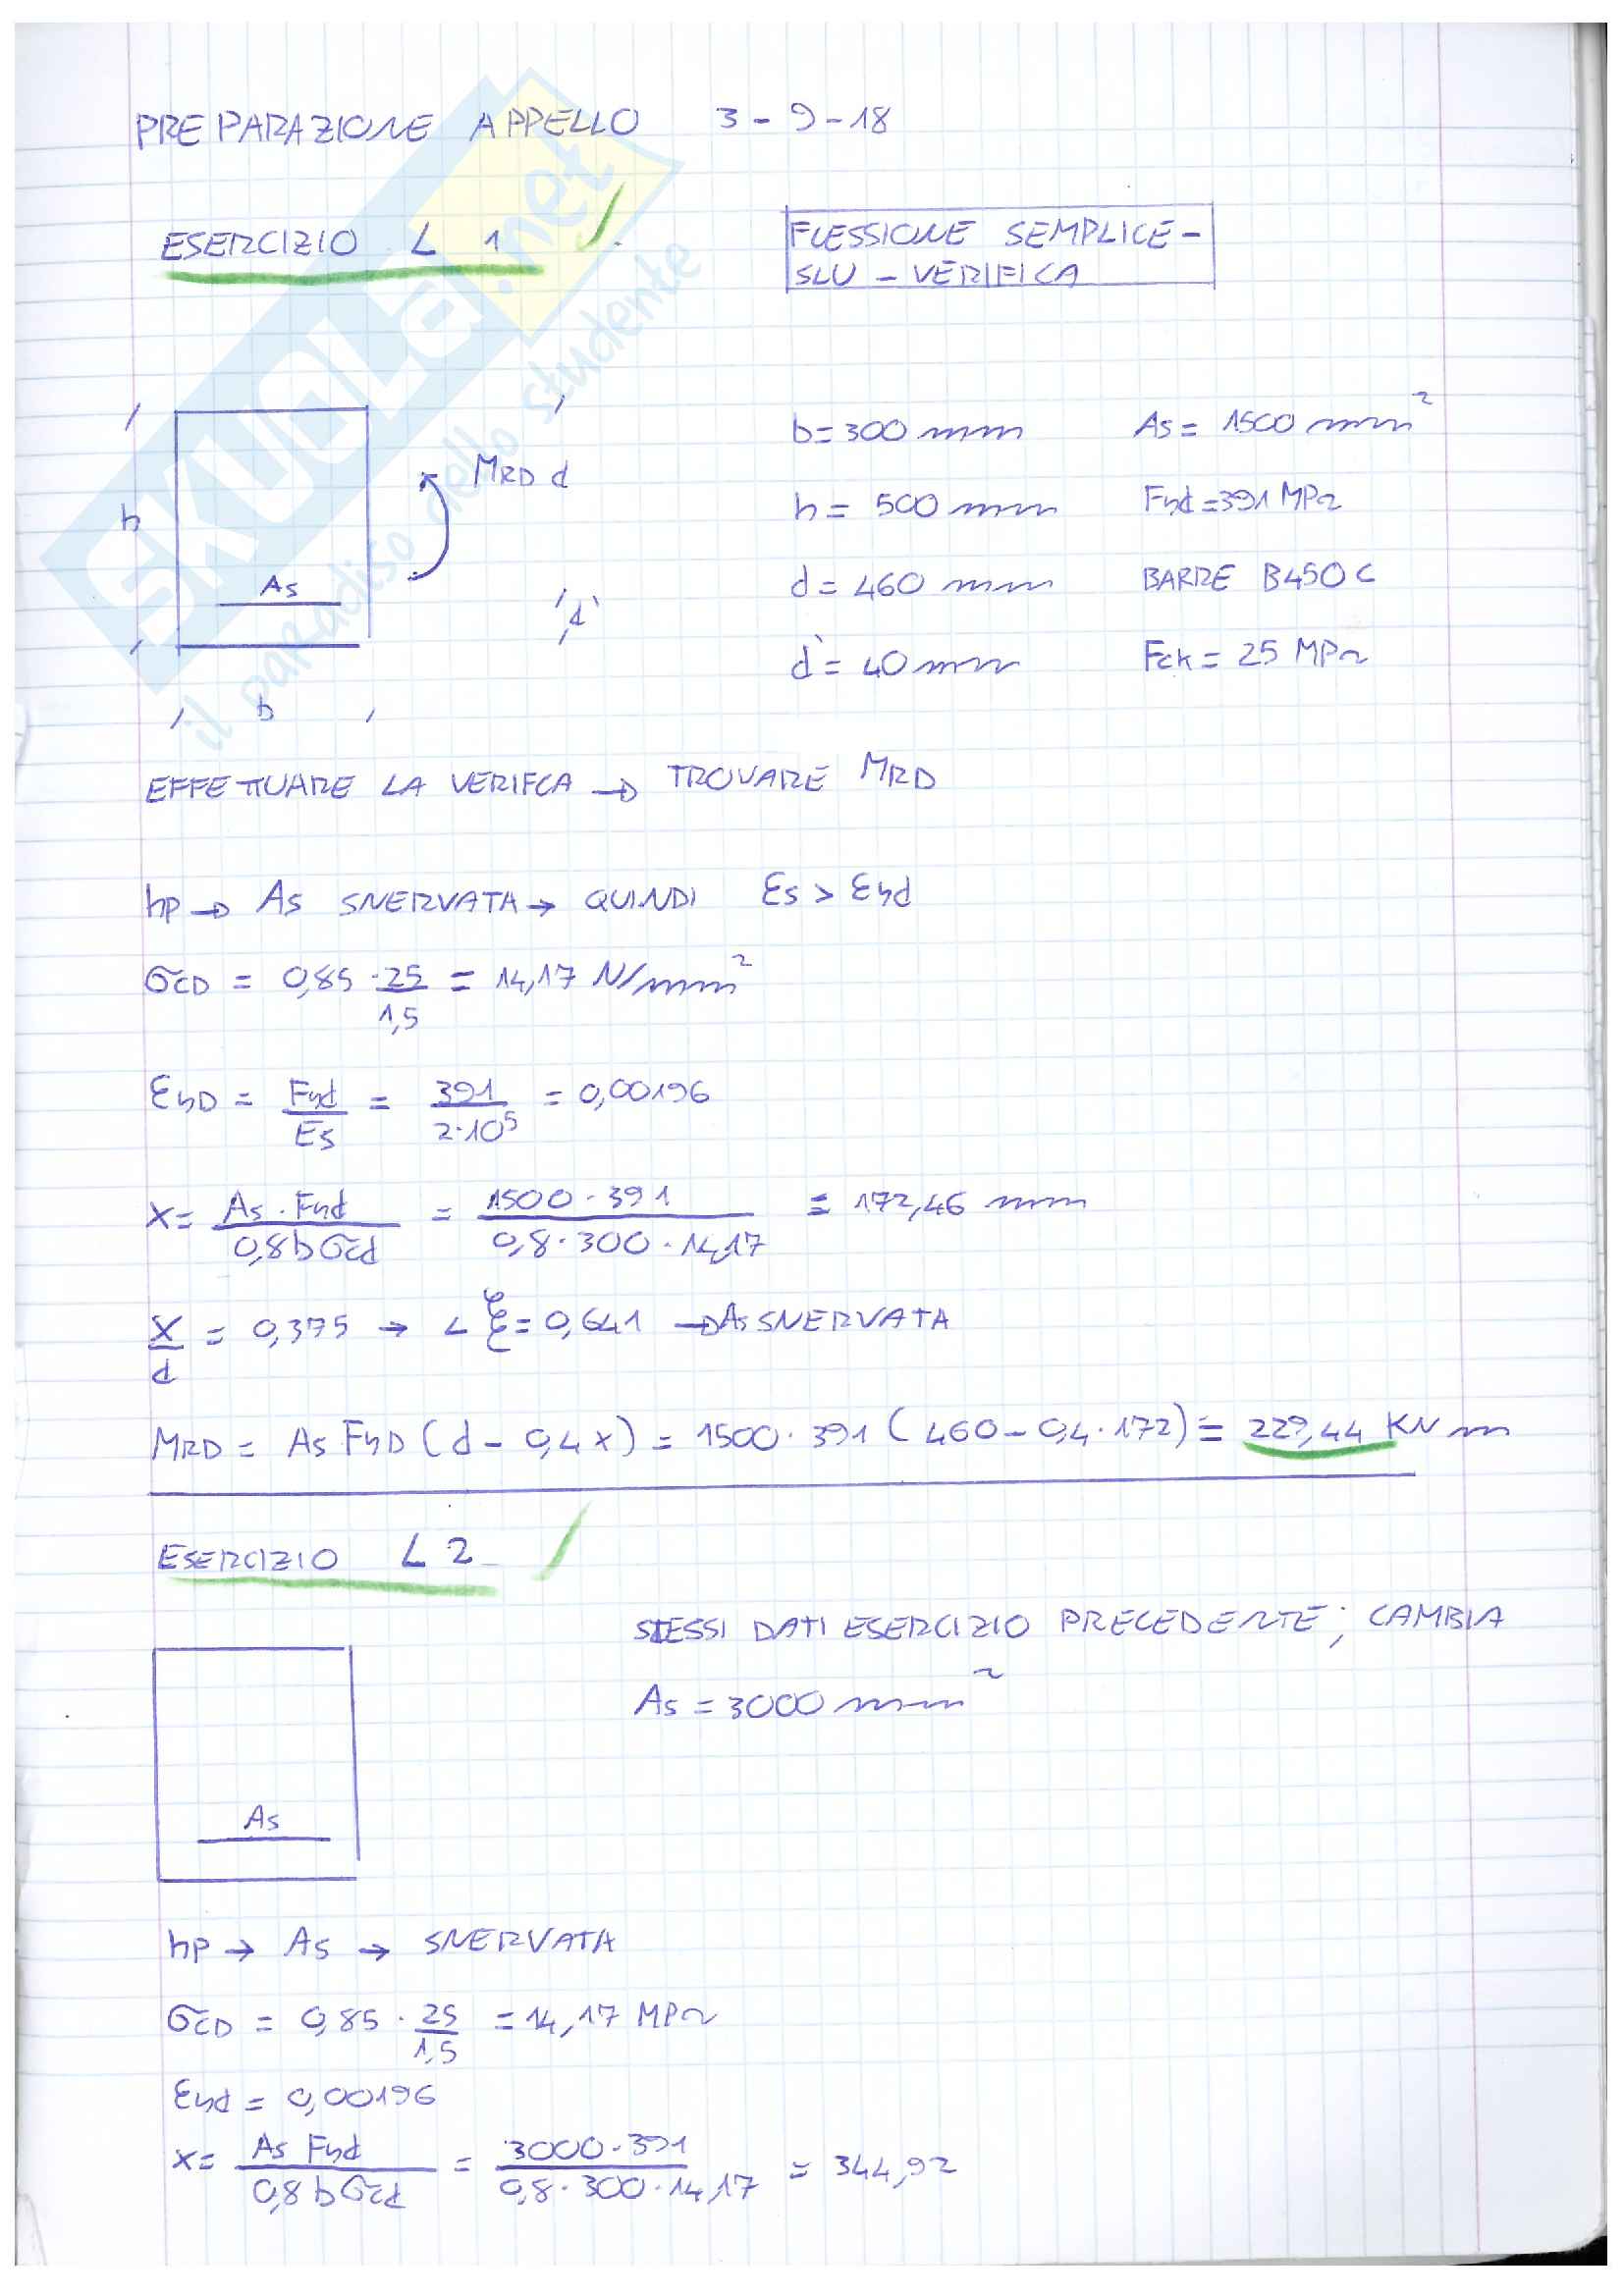 PREPARAZIONE APPELLO 3-9-18
ESERCIZIO L 1
FLESSIONE SEMPLICE-
SLU - VERIFICA
SKUOLA.net
il paradiso dello studente
b=300 mm As = 1500 mm²
MRD d
h
h = 500 mm Fyd=391 MPa
As
d = 460 mm BARRE B450C
d'
d' = 40 mm Fck = 25 MPa
b
EFFETTUARE LA VERIFCA → TROVARE MRD
hp → As SNERVATA → QUINDI Es > Eyd
σCD = 0,85 · 25/1,5 = 14,17 N/mm²
EyD = Fyd/Es = 391/2·10⁵ = 0,00196
x= As·Fyd/0,8bσcd = 1500·391/0,8·300·14,17 = 172,46 mm
x/d = 0,375 → < ξ=0,641 → As SNERVATA
MRD = As FyD (d - 0,4x) = 1500·391 (460-0,4·172) = 229,44 KN m
ESERCIZIO L 2
STESSI DATI ESERCIZIO PRECEDENTE; CAMBIA
As = 3000 mm²
As
hp → As → SNERVATA
σCD = 0,85 · 25/1,5 = 14,17 MPa
Eyd = 0,00196
x= As Fyd/0,8 b σcd = 3000·391/0,8·300·14,17 = 344,92